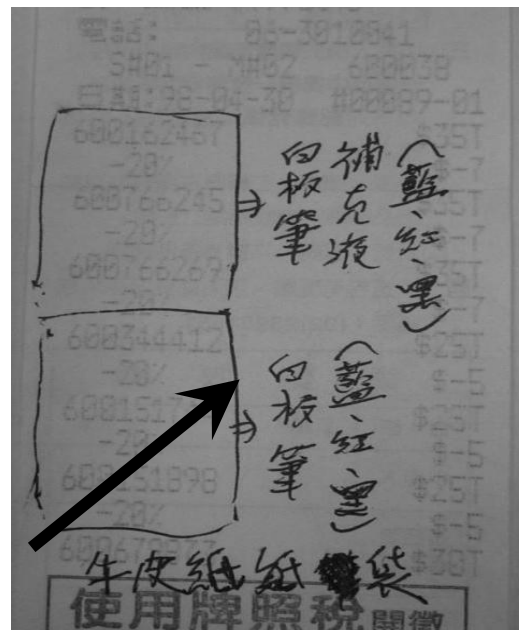 電話: 06-3010041
S#01 - M#02 600038
日期:98-04-30 #00089-01
600162467 $35T
-20% $-7
600766245 $35T
-20% $-7
600766269 $35T
-20% $-7
600344412 $25T
-20% $-5
$25T
-20% $-5
-20% $-5
$30T
⇒ 白板筆
補充液
(藍、紅、黑)
⇒ 白板筆
(藍、紅、黑)
牛皮紙紙袋
使用牌照稅開徵